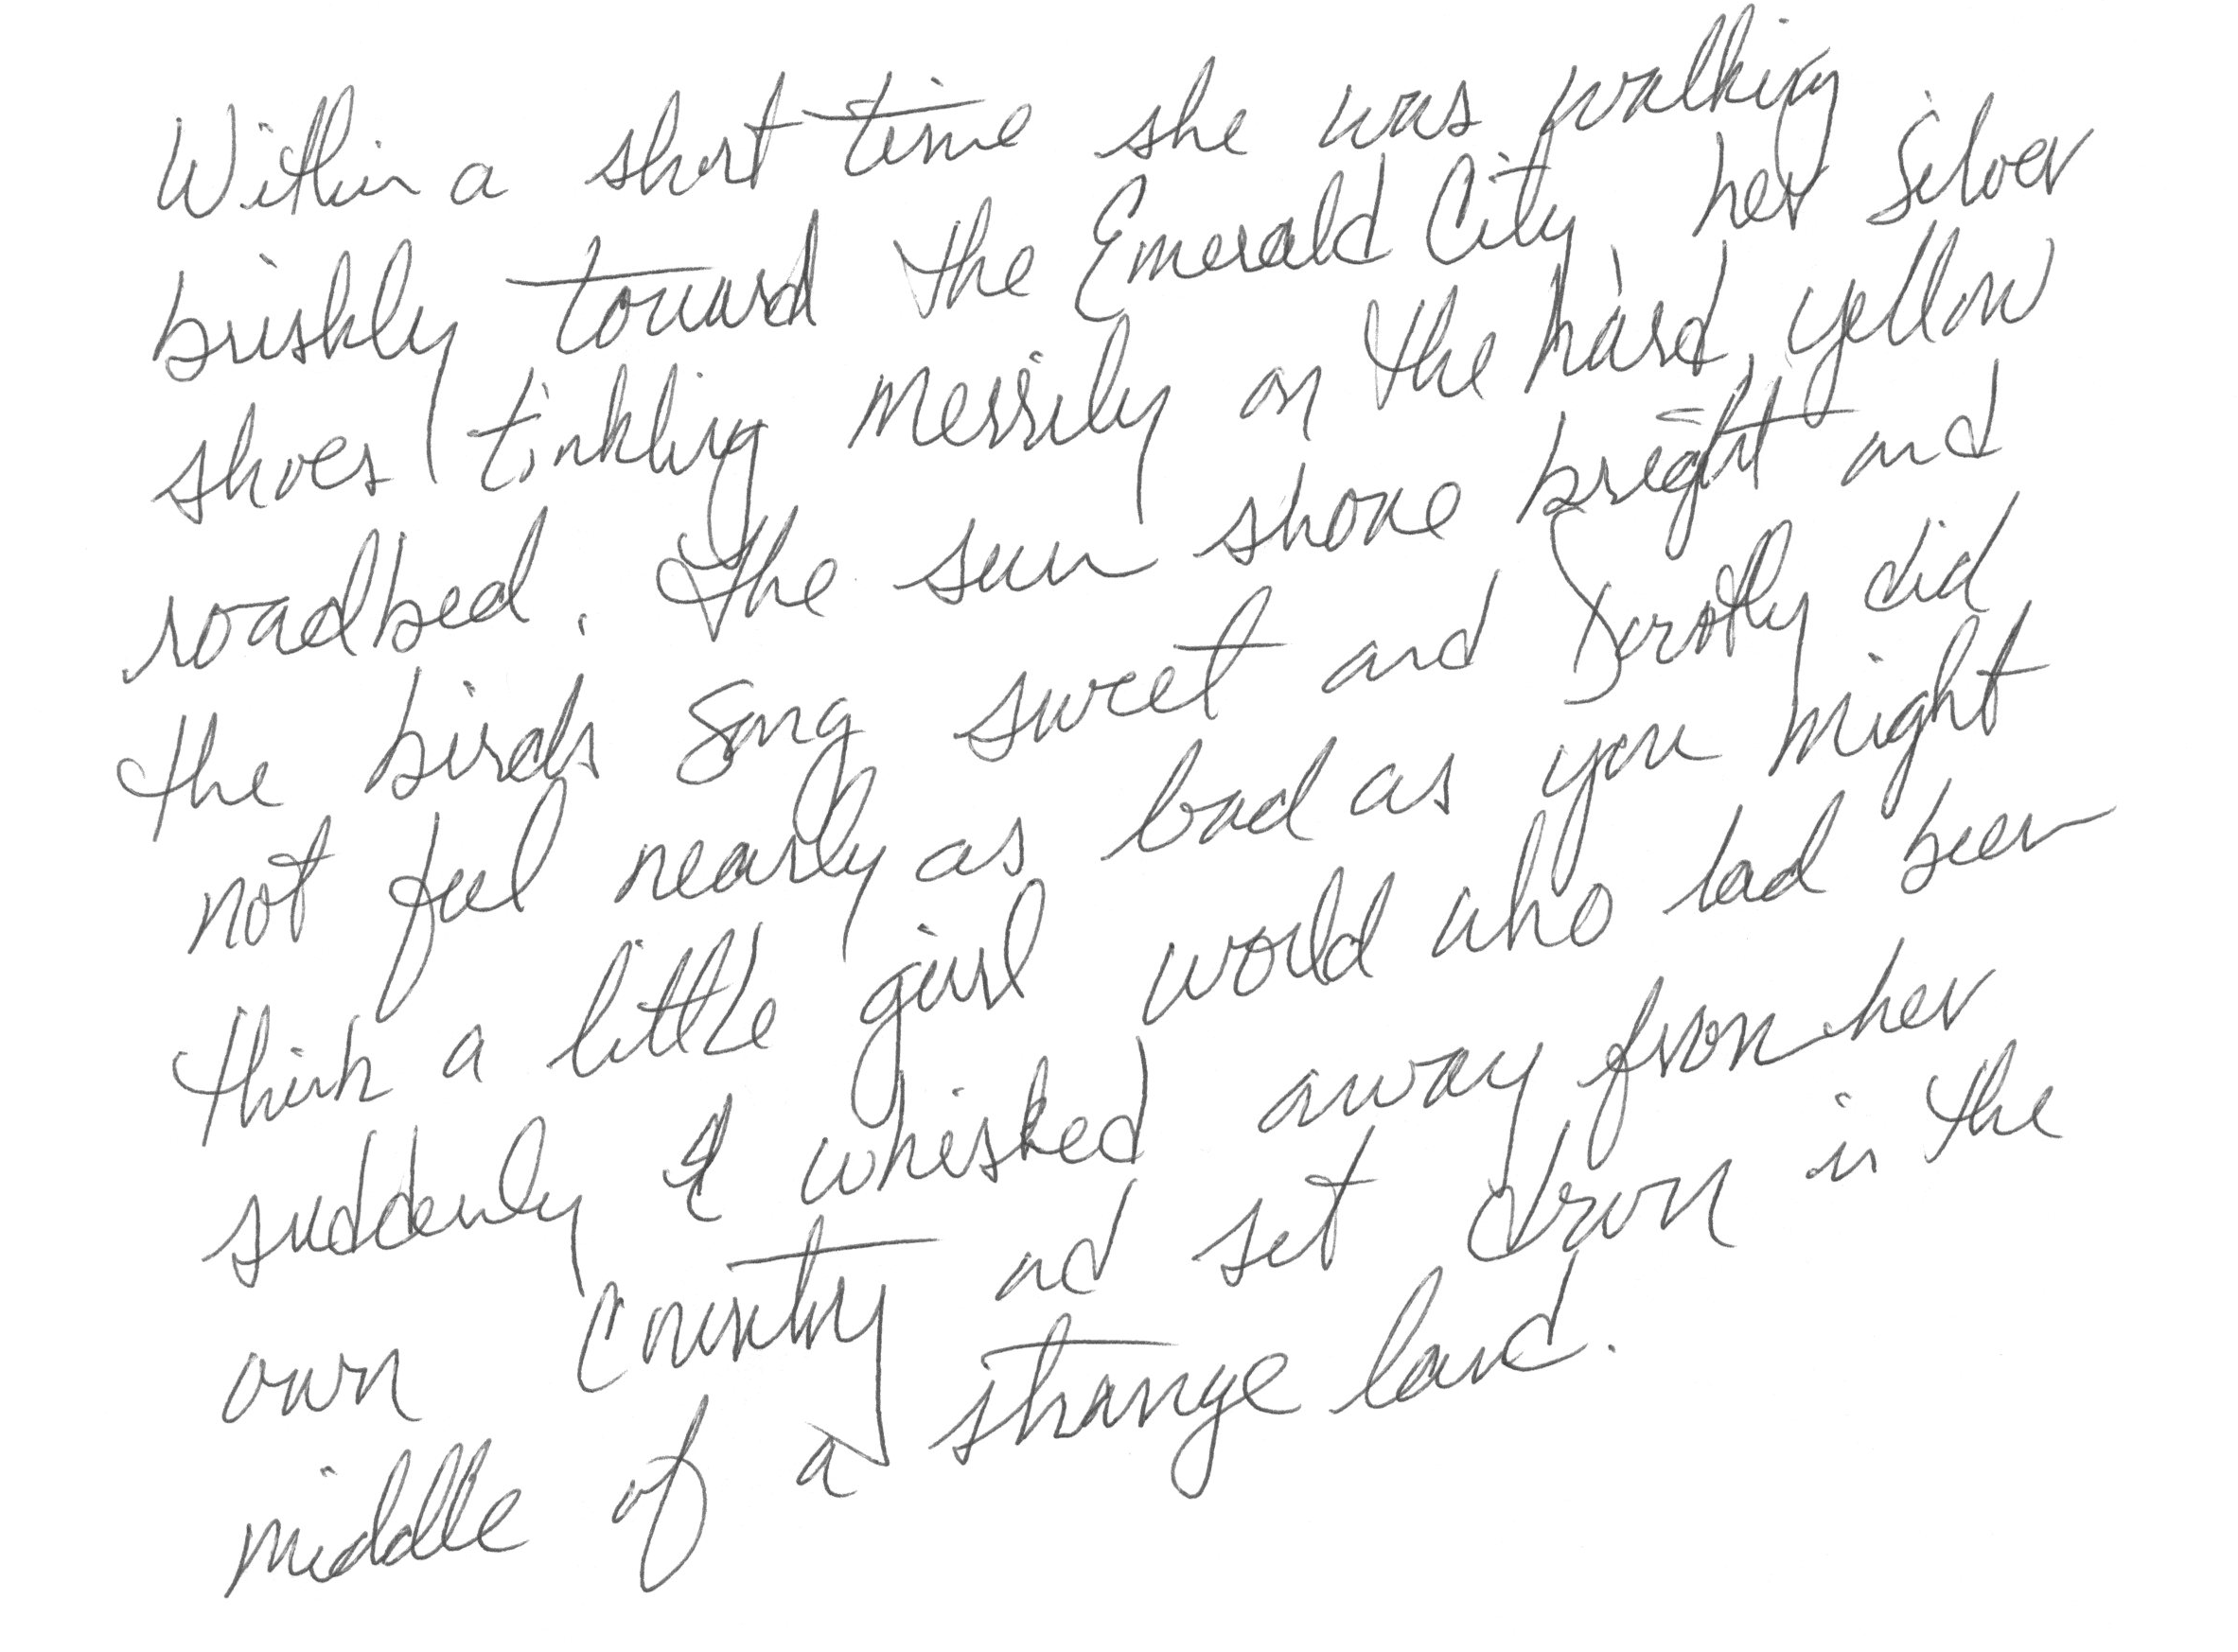 Within a short time she was walking
briskly toward the Emerald City, her silver
shoes tinkling merrily on the hard, yellow
roadbed. The sun shone bright and
the birds song sweet and Dorothy did
not feel nearly as bad as you might
think a little girl world who had been
suddenly whisked away from her
own country ad set down in the
middle of a strange land.